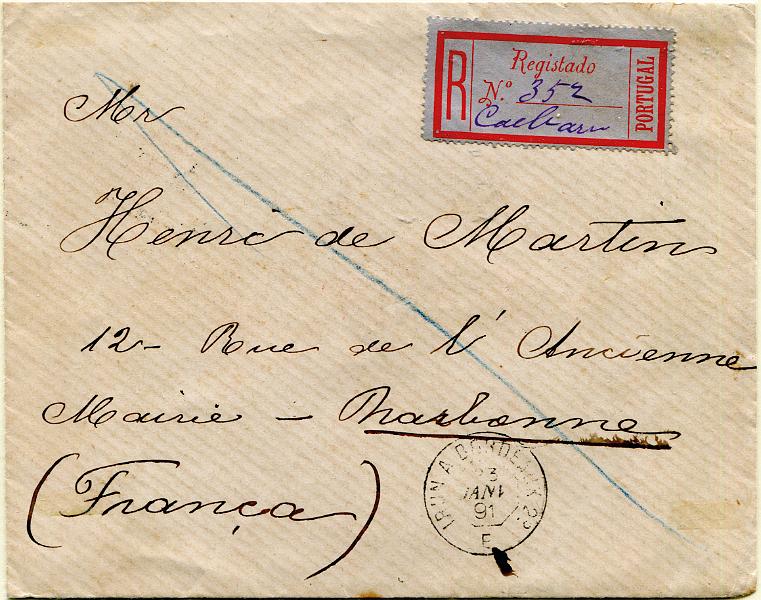 R
Registado
N.º 352
PORTUGAL
Mr
Henri de Martin
12- Rue de l'Ancienne
Mairie - Narbonne
(França)
IRUN A BORDEAUX 2º
23
JANV
91
E